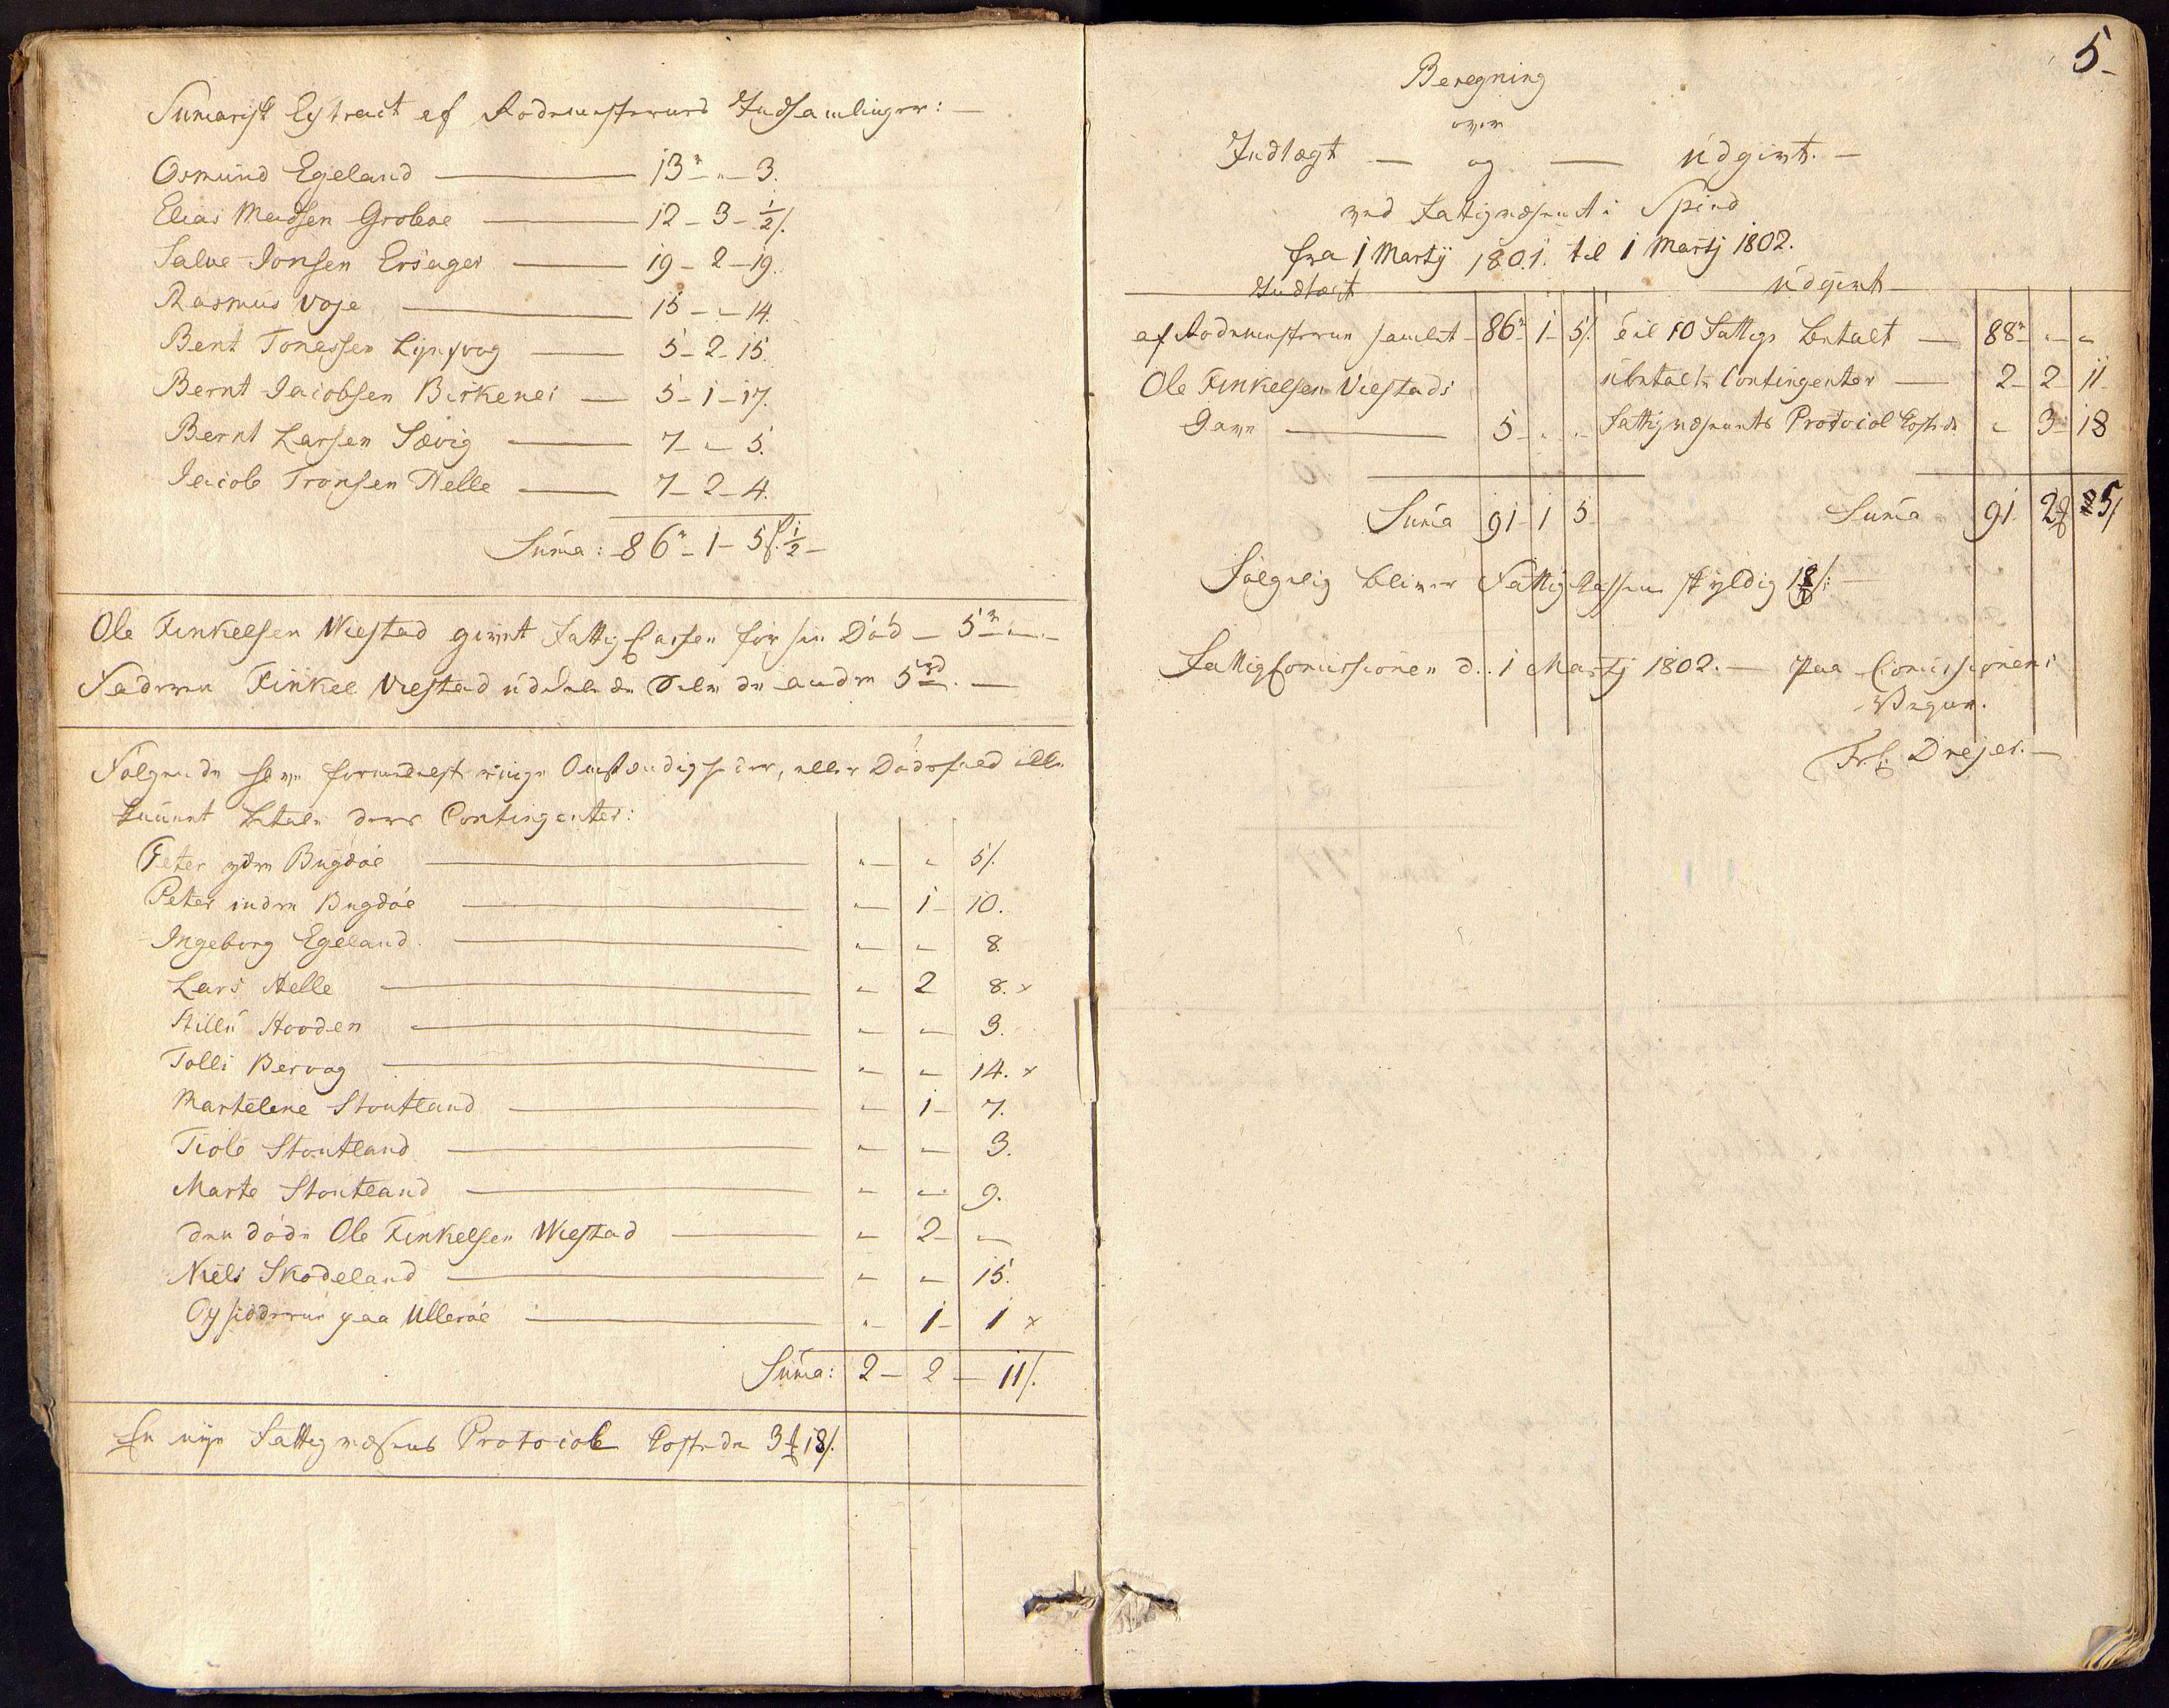 Sumarisk Extract af Rodemesternes Indsamlinger: —
Osmund Egeland — 13 r – " – 3.
Elias Madsen Groboe — 12 – 3 – ½ s.
Salve Jonsen Ersager — 19 – 2 – 19.
Rasmus Voje — 15 – " – 14.
Bent Tonessen Lyngvog — 5 – 2 – 15.
Bernt Jacobsen Birkenes — 5 – 1 – 17.
Bernt Larsen Sævig — 7 – " – 5.
Jacob Tronsen Helle — 7 – 2 – 4.
Suma: 86 r – 1 – 5 s. ½ –
Ole Tinkelsen Wiestad givet Fattig Cassen før sin Død – 5 r " – " –
Faderen Tinkel Viestad udelede de andre 5 rd. —
Følgende have formedelst ringe Omstændigheder, eller Dødsfald ikke
kunnet betale deres Contingenter:
Peter ydre Bugdøe — " – " 5 s.
Peter indre Bugdøe — " – 1 – 10.
Ingeborg Egeland — " – " 8.
Lars Helle — " 2 8. x
Hooden — " – " 3.
Tolli Bervog — " – " 14. x
Martelene Stoutland — " – 1 – 7.
Tiole Stoutland — " – " 3.
Marte Stoutland — " – " 9.
den døde Ole Tinkelsen Wiestad — " 2 – "
Niels Skodeland — " – " 15.
Opsidderne paa Ullerøe — " – 1 – 1 x
Suma: 2 – 2 – 11 s.
En nye Fattigvæsens Protocol kostede 3 18 s.
5 –
Beregning
over
Indtægt — og — Udgivt. —
ved Fatigvæsenet i Spind
fra 1 Martij 1801. til 1 Martj 1802.
Indtægt Udgivt
af Rodemesterne samlet – 86 r 1 – 5 s. til 10 Fattige betalt — 88 r – " – "
Ole Tinkelsen Viestads ubetalte Contingenter — 2 – 2 11
Gave — 5 – " – " Fattigvæsenets Protocol kostede " 3 – 18
Suma 91 – 1 5 – Suma 91 2 5 s
Følgelig bliver Fattig Cassen skyldig 18 s: —
FattigComissionen d. 1 Martj 1802. — Paa Comissionens
Vegne.
Frk. Dreyer. —